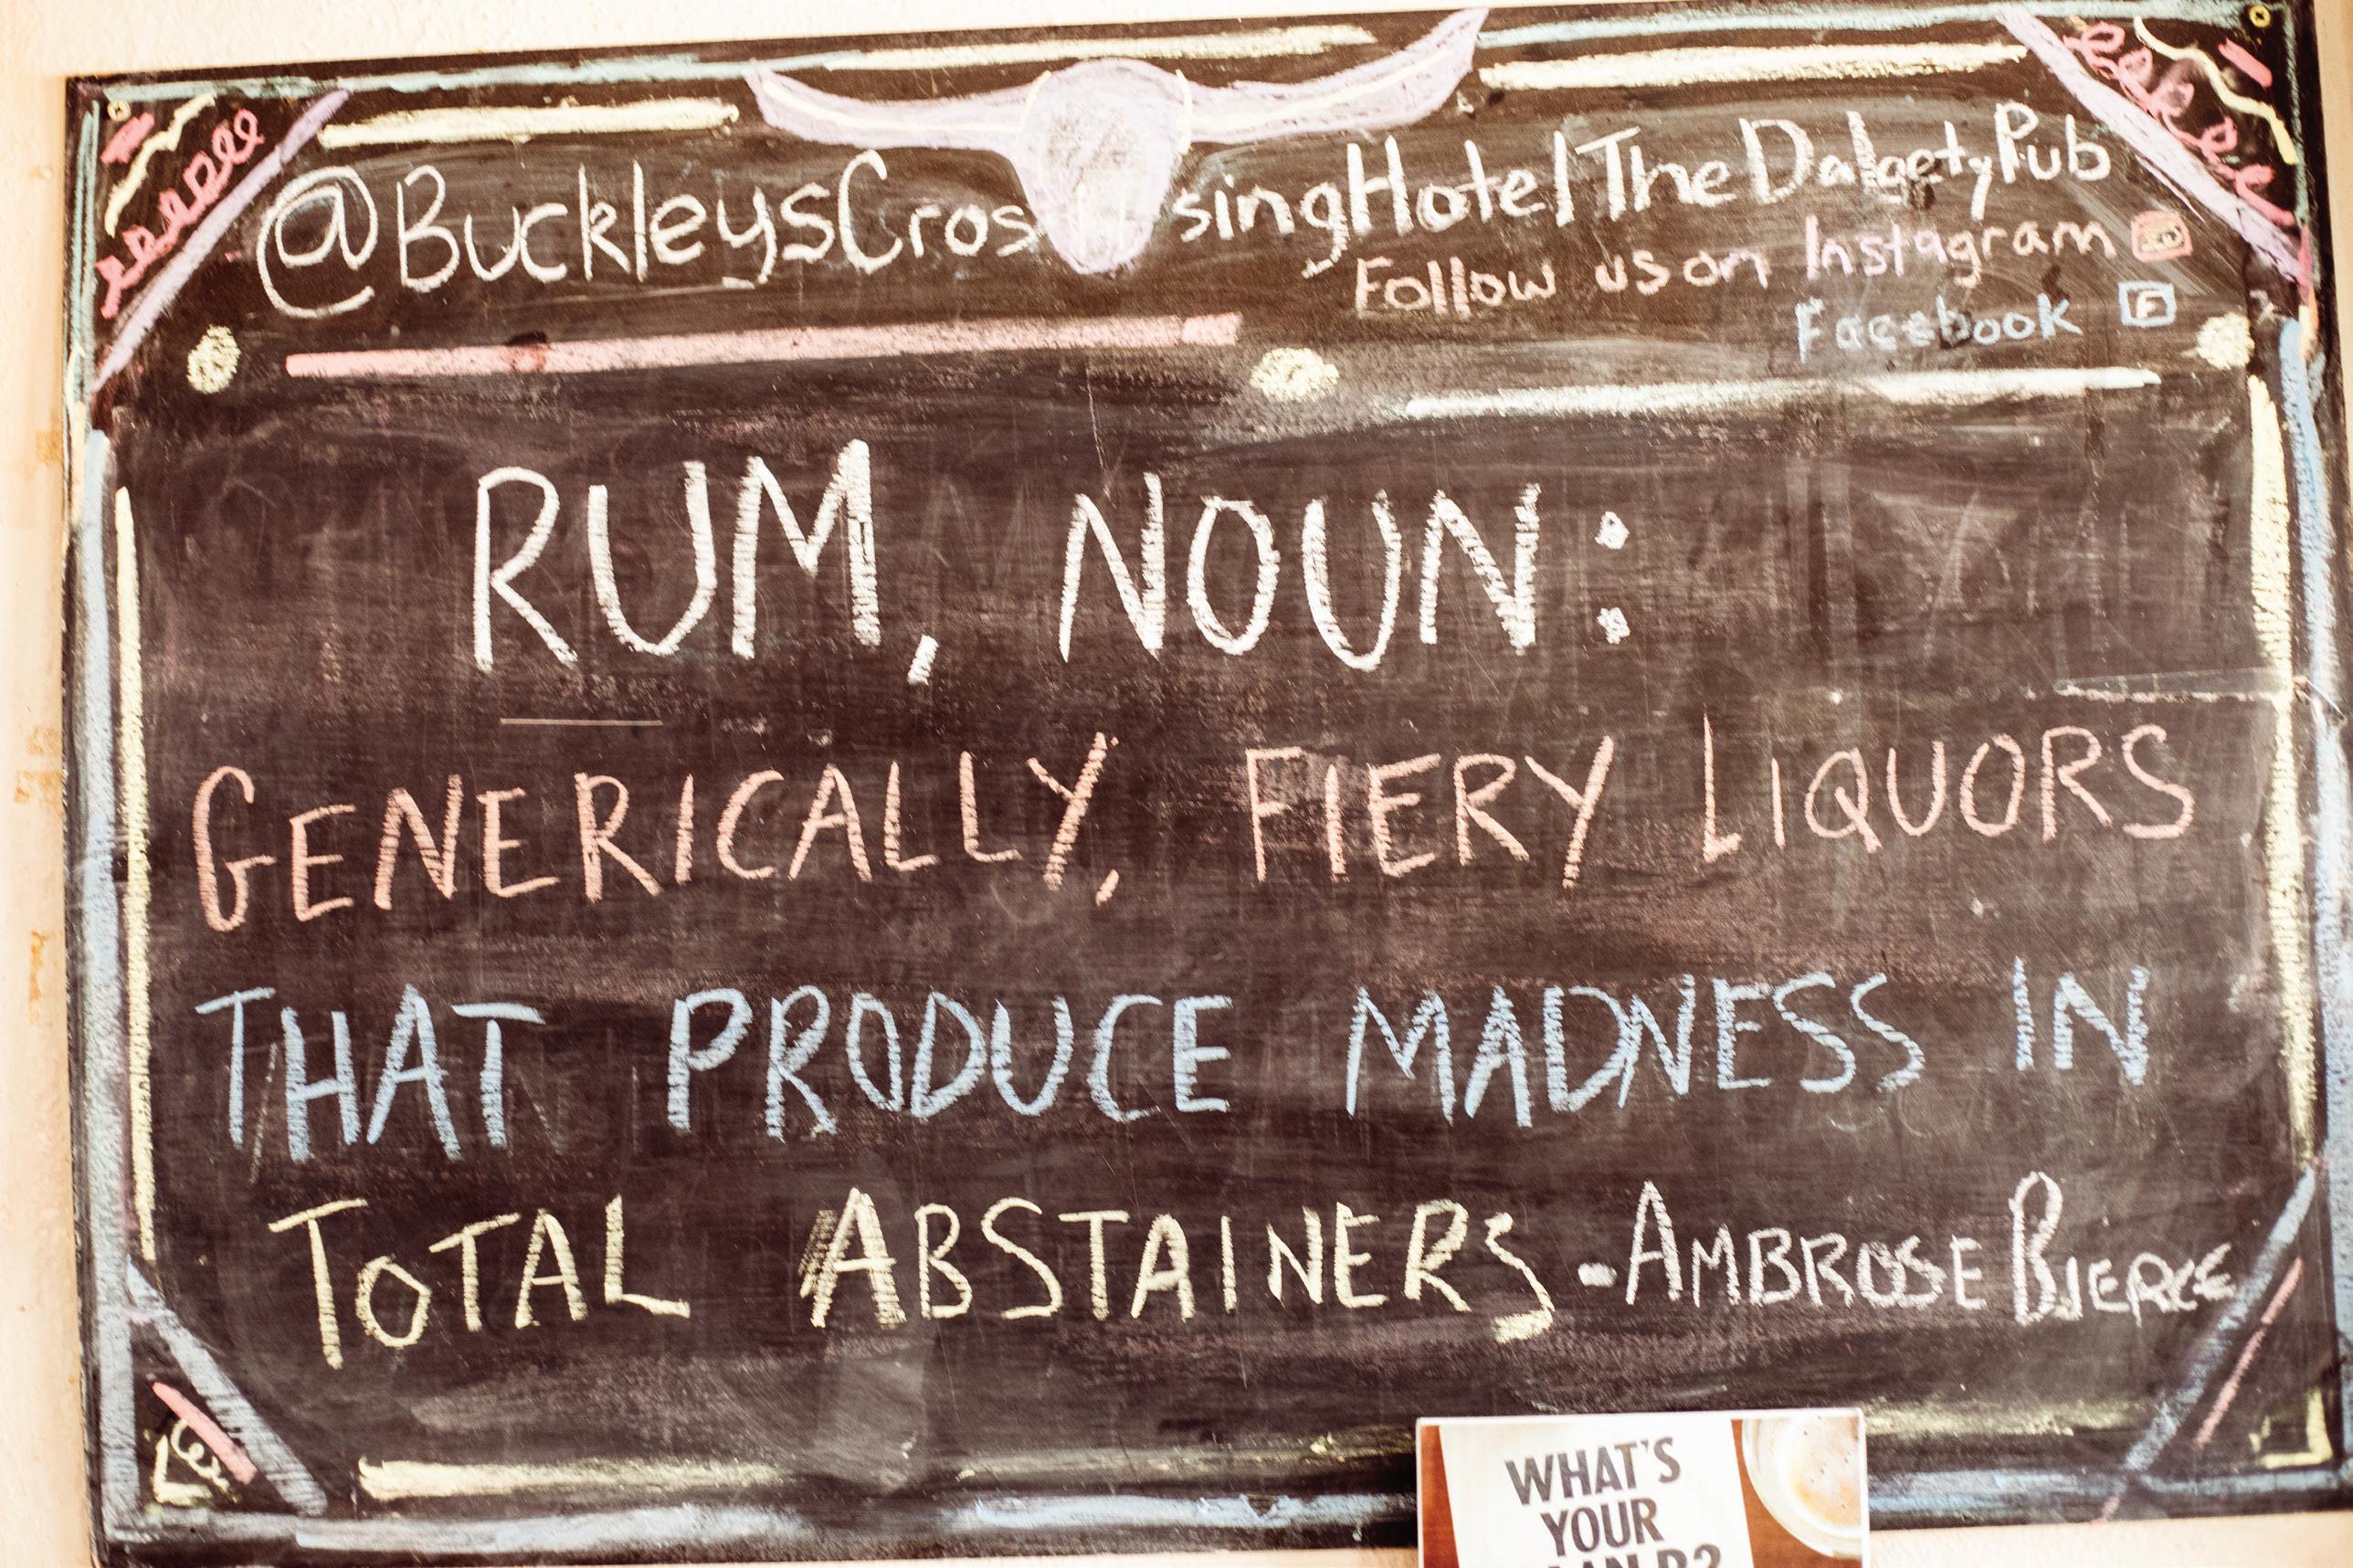 @BuckleysCrossingHotelTheDalgetyPub
Follow us on Instagram
Facebook F
RUM, NOUN:
GENERICALLY, FIERY LIQUORS
THAT PRODUCE MADNESS IN
TOTAL ABSTAINERS - AMBROSE BIERCE
WHAT'S
YOUR